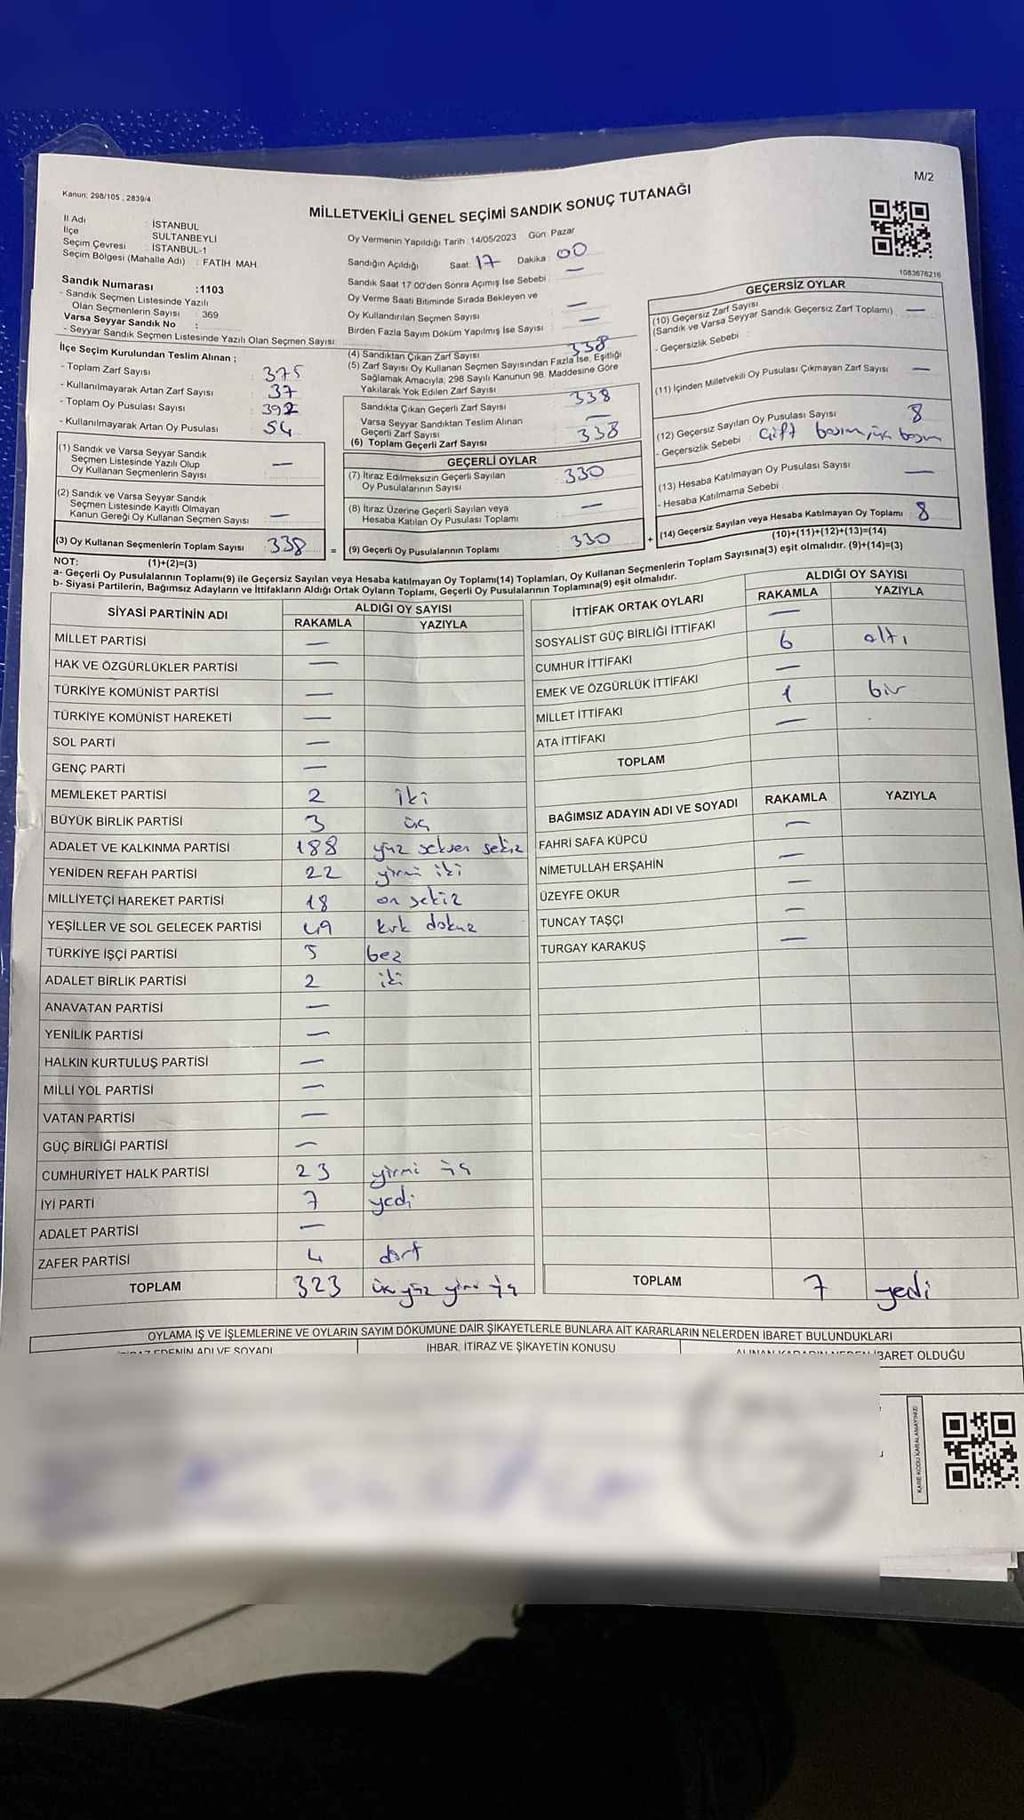 M/2
Kanun: 298/105 , 2839/4
MİLLETVEKİLİ GENEL SEÇİMİ SANDIK SONUÇ TUTANAĞI
1083678216
İl Adı : İSTANBUL
İlçe : SULTANBEYLİ
Seçim Çevresi : İSTANBUL-1
Seçim Bölgesi (Mahalle Adı) : FATİH MAH.
Sandık Numarası :1103
- Sandık Seçmen Listesinde Yazılı
Olan Seçmenlerin Sayısı : 369
Varsa Seyyar Sandık No :
- Seyyar Sandık Seçmen Listesinde Yazılı Olan Seçmen Sayısı :
Oy Vermenin Yapıldığı Tarih 14/05/2023 Gün: Pazar
Sandığın Açıldığı Saat: 17 Dakika 00
Sandık Saat 17:00'den Sonra Açımış İse Sebebi : —
Oy Verme Saati Bitiminde Sırada Bekleyen ve
Oy Kullandırılan Seçmen Sayısı —
Birden Fazla Sayım Döküm Yapılmış İse Sayısı —
İlçe Seçim Kurulundan Teslim Alınan ;
- Toplam Zarf Sayısı : 375
- Kullanılmayarak Artan Zarf Sayısı : 37
- Toplam Oy Pusulası Sayısı : 392
- Kullanılmayarak Artan Oy Pusulası : 54
(1) Sandık ve Varsa Seyyar Sandık
Seçmen Listesinde Yazılı Olup
Oy Kullanan Seçmenlerin Sayısı —
(2) Sandık ve Varsa Seyyar Sandık
Seçmen Listesinde Kayıtlı Olmayan
Kanun Gereği Oy Kullanan Seçmen Sayısı —
(3) Oy Kullanan Seçmenlerin Toplam Sayısı 338
(1)+(2)=(3)
(4) Sandıktan Çıkan Zarf Sayısı 338
(5) Zarf Sayısı Oy Kullanan Seçmen Sayısından Fazla İse, Eşitliği
Sağlamak Amacıyla; 298 Sayılı Kanunun 98. Maddesine Göre
Yakılarak Yok Edilen Zarf Sayısı
Sandıkta Çıkan Geçerli Zarf Sayısı 338
Varsa Seyyar Sandıktan Teslim Alınan
Geçerli Zarf Sayısı —
(6) Toplam Geçerli Zarf Sayısı 338
GEÇERLİ OYLAR
(7) İtiraz Edilmeksizin Geçerli Sayılan
Oy Pusulalarının Sayısı 330
(8) İtiraz Üzerine Geçerli Sayılan veya
Hesaba Katılan Oy Pusulası Toplamı —
= (9) Geçerli Oy Pusulalarının Toplamı 330
GEÇERSİZ OYLAR
(10) Geçersiz Zarf Sayısı
(Sandık ve Varsa Seyyar Sandık Geçersiz Zarf Toplamı) —
- Geçersizlik Sebebi :
(11) İçinden Milletvekili Oy Pusulası Çıkmayan Zarf Sayısı —
(12) Geçersiz Sayılan Oy Pusulası Sayısı 8
- Geçersizlik Sebebi Çift basım, basım
(13) Hesaba Katılmayan Oy Pusulası Sayısı —
- Hesaba Katılmama Sebebi :
+ (14) Geçersiz Sayılan veya Hesaba Katılmayan Oy Toplamı 8
(10)+(11)+(12)+(13)=(14)
NOT:
a- Geçerli Oy Pusulalarının Toplamı(9) ile Geçersiz Sayılan veya Hesaba katılmayan Oy Toplamı(14) Toplamları, Oy Kullanan Seçmenlerin Toplam Sayısına(3) eşit olmalıdır. (9)+(14)=(3)
b- Siyasi Partilerin, Bağımsız Adayların ve İttifakların Aldığı Ortak Oyların Toplamı, Geçerli Oy Pusulalarının Toplamına(9) eşit olmalıdır.
SİYASİ PARTİNİN ADI ALDIĞI OY SAYISI
RAKAMLA YAZIYLA
MİLLET PARTİSİ —
HAK VE ÖZGÜRLÜKLER PARTİSİ —
TÜRKİYE KOMÜNİST PARTİSİ —
TÜRKİYE KOMÜNİST HAREKETİ —
SOL PARTİ —
GENÇ PARTİ —
MEMLEKET PARTİSİ 2 iki
BÜYÜK BİRLİK PARTİSİ 3 üç
ADALET VE KALKINMA PARTİSİ 188 yüz seksen sekiz
YENİDEN REFAH PARTİSİ 22 yirmi iki
MİLLİYETÇİ HAREKET PARTİSİ 18 on sekiz
YEŞİLLER VE SOL GELECEK PARTİSİ 49 kırk dokuz
TÜRKİYE İŞÇİ PARTİSİ 5 beş
ADALET BİRLİK PARTİSİ 2 iki
ANAVATAN PARTİSİ —
YENİLİK PARTİSİ —
HALKIN KURTULUŞ PARTİSİ —
MİLLİ YOL PARTİSİ —
VATAN PARTİSİ —
GÜÇ BİRLİĞİ PARTİSİ —
CUMHURİYET HALK PARTİSİ 23 yirmi üç
İYİ PARTİ 7 yedi
ADALET PARTİSİ —
ZAFER PARTİSİ 4 dört
TOPLAM 323 üç yüz yirmi üç
İTTİFAK ORTAK OYLARI ALDIĞI OY SAYISI
RAKAMLA YAZIYLA
SOSYALİST GÜÇ BİRLİĞİ İTTİFAKI —
CUMHUR İTTİFAKI 6 altı
EMEK VE ÖZGÜRLÜK İTTİFAKI —
MİLLET İTTİFAKI 1 bir
ATA İTTİFAKI —
TOPLAM
BAĞIMSIZ ADAYIN ADI VE SOYADI RAKAMLA YAZIYLA
FAHRİ SAFA KÜPCÜ —
NİMETULLAH ERŞAHİN —
ÜZEYFE OKUR —
TUNCAY TAŞÇI —
TURGAY KARAKUŞ —
TOPLAM 7 yedi
OYLAMA İŞ VE İŞLEMLERİNE VE OYLARIN SAYIM DÖKÜMÜNE DAİR ŞİKAYETLERLE BUNLARA AİT KARARLARIN NELERDEN İBARET BULUNDUKLARI
EDENİN ADI VE SOYADI IHBAR, İTİRAZ VE ŞİKAYETİN KONUSU İBARET OLDUĞU
KARE KODU KARALAMAYINIZ!